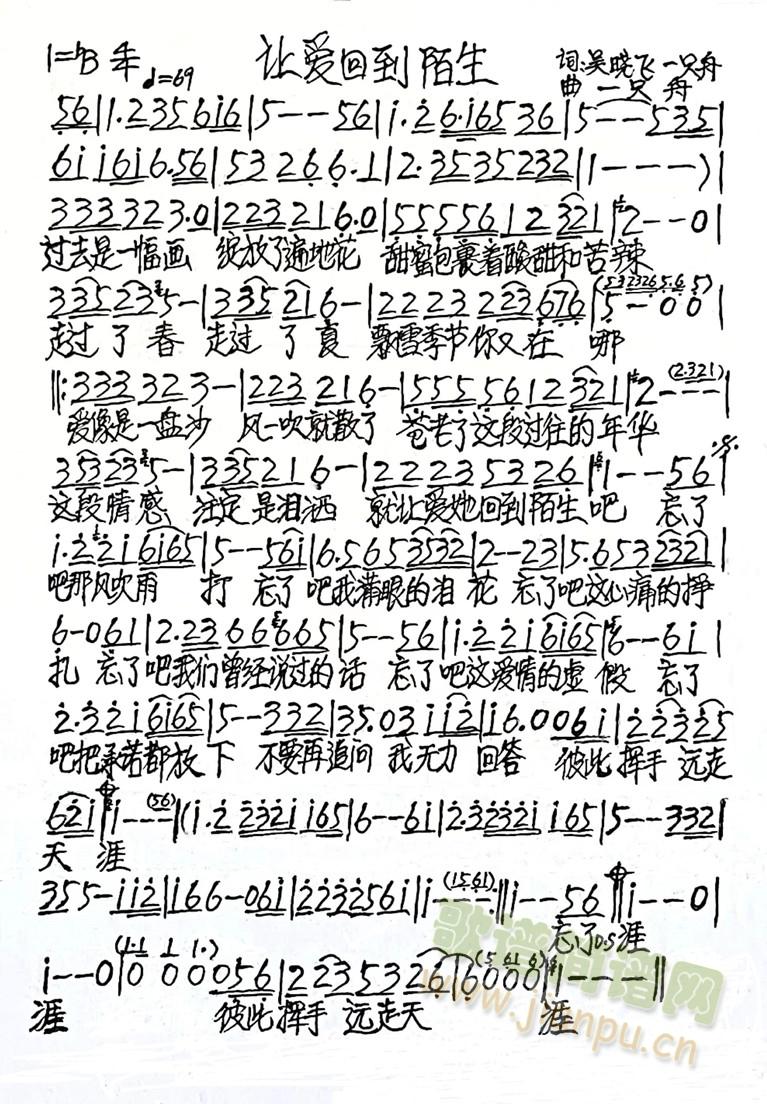 1=♭B 4/4 ♩=69 让爱回到陌生 词:吴晓飞 一只舟
曲 一只舟
56|1.235616|5--56|1.26.16536|5--535|
611616.56|53266.1|2.3535232|1---)|
3333323.0|2232216.0|5555612321|2--0|
过去是一幅画 绽放了遍地花 甜蜜包裹着酸甜和苦辣
335235-|335216-|22223223676|(532326.5.6.5)5-00|
走过了春 走过了夏 飘雪季节你又在哪
‖:333323-|223216-|5555612321|2---(2.321)|
爱像是一盘沙 风一吹就散了 苍老了这段过往的年华
353235-|335216-|22223532 6|1--56|
这段情感 注定是泪洒 就让爱她回到陌生吧 忘了
1.2216165|5--561|6.5653532|2--23|5.6532321|
吧那风吹雨打 忘了吧我满眼的泪花 忘了吧这心痛的挣
6-061|2.2366665|5--56|1.2216165|6--61|
扎 忘了吧我们曾经说过的话 忘了吧这爱情的虚假 忘了
2.3216165|5--332|35.03112|16.0061|22325
吧把承诺都放下 不要再追问 我无力回答 彼此挥手远走
621|1---(56)|(1.22321165|6--61|2.32321165|5--332|
天涯
355-112|166-061|2232561|1---(1561):‖1--56‖1--0|
忘了 D.S 涯
1--0|(1.1 1 1.)0000 56|22353266|(5 61 6)000|1---‖
涯 彼此挥手远走天 涯
歌谱简谱网
www.jianpu.cn